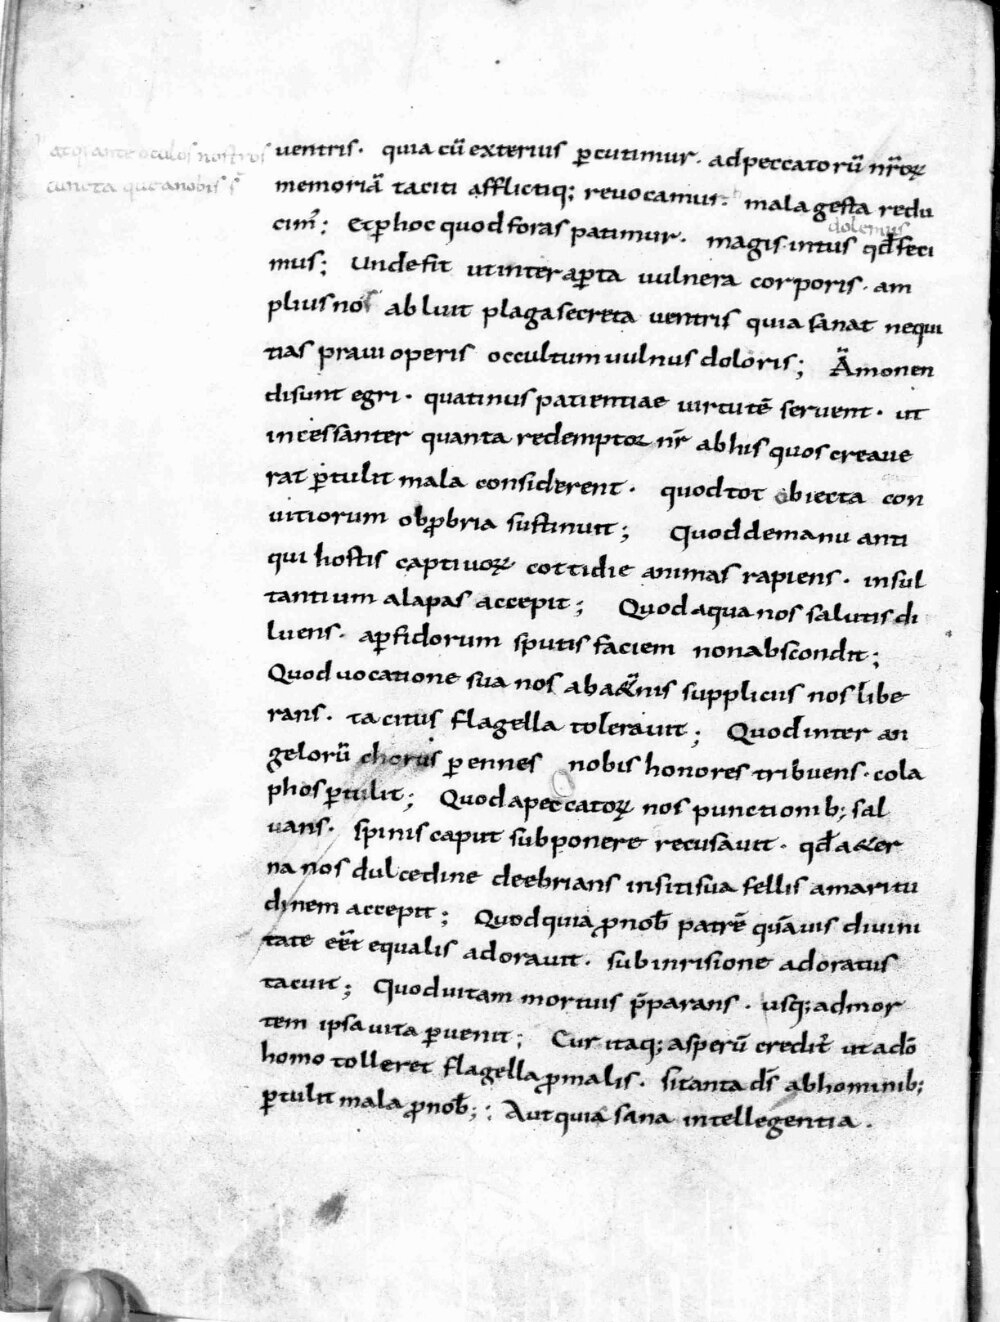 atq; ante oculos nostros
cuncta que a nobis s̄
ventris. quia cū exterius ꝑcutimur. ad peccatorū nr̄oꝝ
memoriā taciti afflictiq; revocamur. mala gesta redu
cim᷒; Et ꝑ hoc quod foras patimur. magis intus qđ feci
dolemus
mus; Unde fit ut inter aꝑta vulnera corporis. am
plius nos abluit plaga secreta ventris quia sanat nequi
tias pravi operis occultum vulnus doloris; Āmonen
di sunt egri. quatinus patientiae virtutē servent. ut
incessanter quanta redemptor nr̄ ab his quos creave
rat ꝑtulit mala considerent. quod tot obiecta con
vitiorum obꝓbria sustinuit; Quod de manu anti
qui hostis captivoꝝ cottidie animas rapiens. insul
tantium alapas accepit; Quod aqua nos salutis di
luens. a ꝑfidorum sputis faciem non abscondit;
Quod vocatione sua nos ab a&̄nis suppliciis nos libe
rans. tacitus flagella toleravit; Quod inter an
gelorū chorus ꝑennes nobis honores tribuens. cola
phos ꝑtulit; Quod a peccatoꝝ nos punctionib; sal
vans. spinis caput subponere recusavit. qđ a &er
na nos dulcedine deebrians in siti sua fellis amaritu
dinem accepit; Quod quia ꝓ nob̄ patrē quāvis divini
tate eēt equalis adoravit. sub inrisione adoratus
tacuit; Quod vitam mortuis p̄parans. usq; ad mor
tem ipsa vita ꝑvenit; Cur itaq; asperū credit̄ ut a dō
homo tolleret flagella ꝓ malis. si tanta ds̄ ab hominib;
ꝑtulit mala ꝓ nob̄; : Aut quia sana intellegentia.